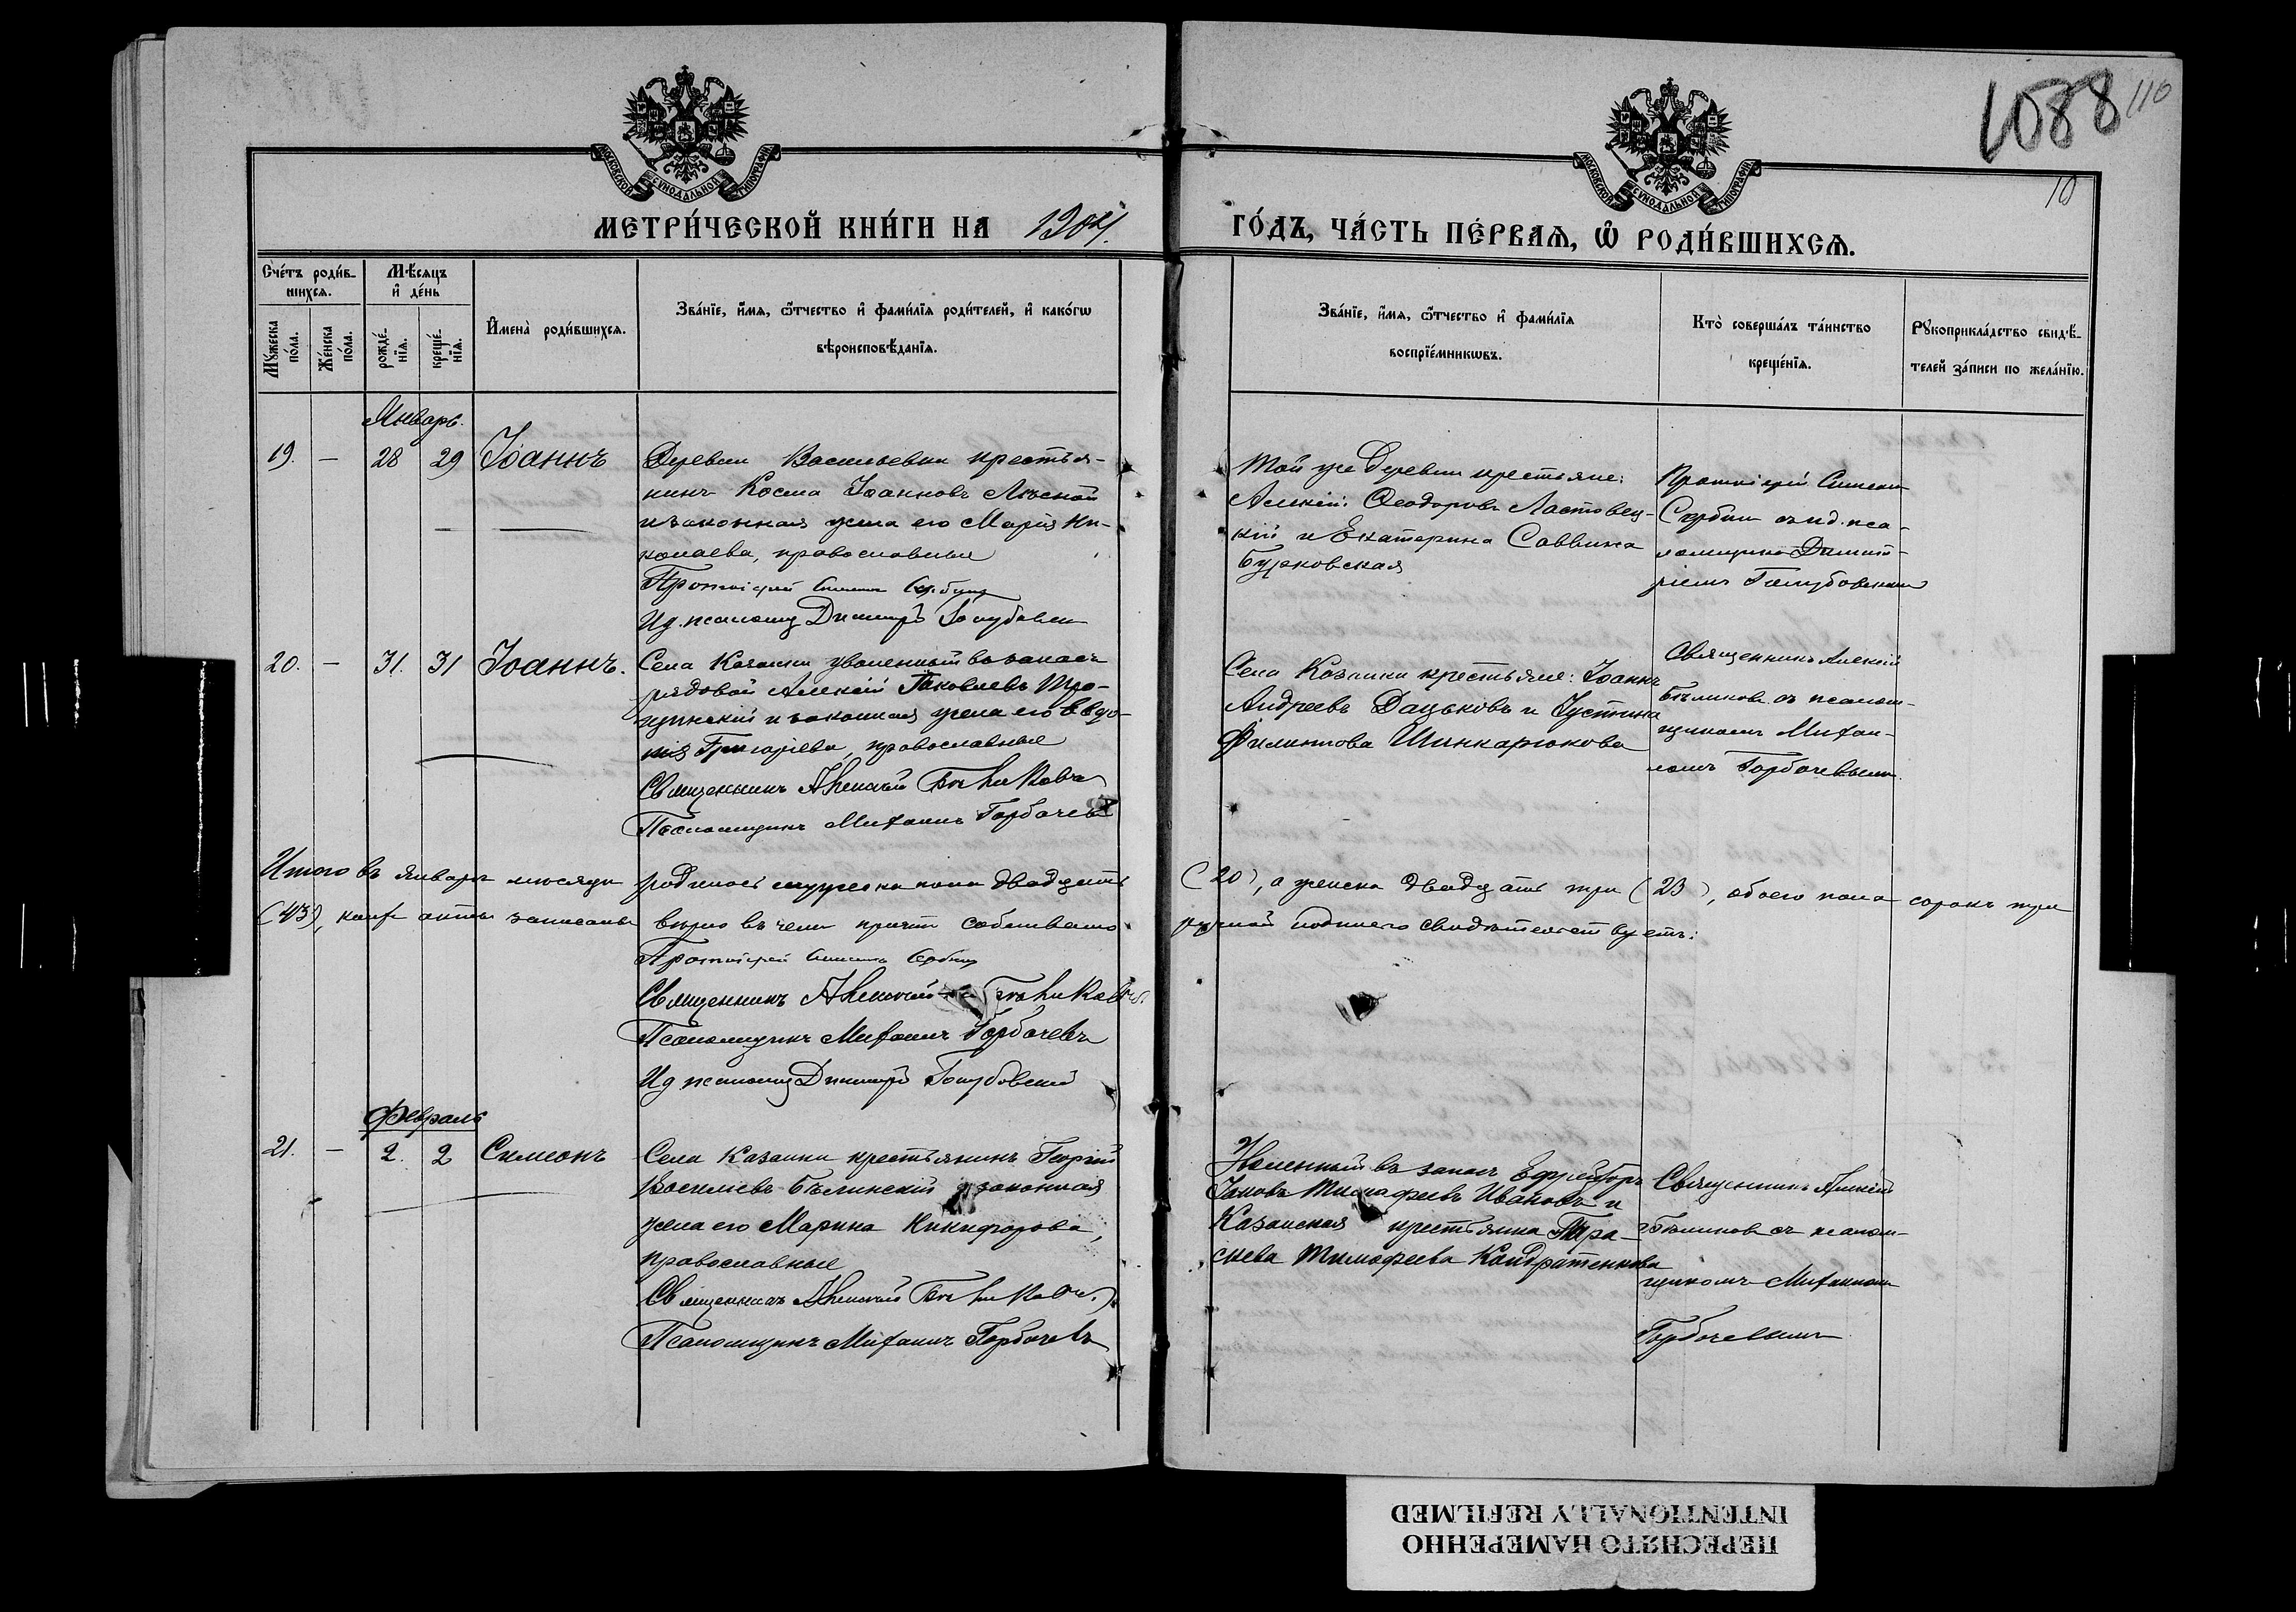 1088 110
10
МОСКОВСКОЙ СУНОДАЛЬНОЙ ТИПОГРАФІИ
МОСКОВСКОЙ СУНОДАЛЬНОЙ ТИПОГРАФІИ
МЕТРИ́ЧЕСКОЙ КНИ́ГИ НА 1904.
ГО́ДЪ, ЧА́СТЬ ПЕ́РВАѦ, Ѽ РОДИ́ВШИХСѦ.
Сче́тъ роди́в-
шихсѧ.
Мꙋ́жеска по́ла.
Же́нска по́ла.
Мѣ́сѧцъ
и҆ де́нь
рожде́-
нїѧ.
креще́-
нїѧ.
И҆мена̀ роди́вшихсѧ.
Зва́нїе, и҆́мѧ, ѻ҆́тчество и҆ фами́лїѧ роди́телей, и҆ како́гѡ
вѣроисповѣ́данїѧ.
Зва́нїе, и҆́мѧ, ѻ҆́тчество и҆ фами́лїѧ
воспрїе́мникѡвъ.
Кто̀ соверша́лъ та́инство
креще́нїѧ.
Рꙋкоприкла́дство свидѣ́-
телей за́писи по жела́нїю.
Январь.
19. — 28 29 Іоаннъ
Деревни Васильевки крестья-
нинъ Косма Іоанновъ Лѣсной
и законная жена его Марія Ни-
колаева, православные
Протоіерей Симеонъ Сербинъ
Ид. псаломщ Димитрій Голубовскій
Той же деревни крестьяне:
Алексій Ѳеодоровъ Ластовец-
кій и Екатерина Саввина
Бурковская
Протоіерей Симеонъ
Сербинъ съ и.д. пса-
ломщика Димит-
ріемъ Голубовскимъ
20. — 31. 31 Іоаннъ.
Села Казанки уволенный въ запасъ
рядовой Алексій Яковлевъ
и законная жена его Евдо-
кія Григоріева, православные
Священникъ Алексій Бѣликовъ
Псаломщикъ Михаилъ Горбачевъ
Села Казанки крестьяне: Іоаннъ
Андреевъ Дацьковъ и Іустина
Филиппова Шинкарюкова
Священникъ Алексій
Бѣликовъ съ псалом-
щикомъ Михаи-
ломъ Горбачевымъ.
Итого въ январѣ мѣсяцѣ родилось мужеска пола двадцать (20), а женска двадцать три (23), обоего пола сорокъ три
(43), акты записаны вѣрно въ чемъ причтъ собственно ручной подписью свидѣтельствуетъ:
Протоіерей Симеонъ Сербинъ
Священникъ Алексій Бѣликовъ.
Псаломщикъ Михаилъ Горбачевъ
Ид псаломщ Димитрій Голубовскій
Февраль
21. — 2. 2 Симеонъ
Села Казанки крестьянинъ Георгій
Василіевъ Бѣлинскій и законная
жена его Марина Никифорова,
православные
Священникъ Алексій Бѣликовъ.
Псаломщикъ Михаилъ Горбачевъ
въ запасъ Ефрейторъ
Іаковъ Тимофеевъ Ивановъ и
Казанская крестьянка Пара-
скева Тимофеева Кондратенкова
Священникъ Алексій
Бѣликовъ съ псалом-
щикомъ Михаиломъ
Горбачевымъ
ПЕРЕСНЯТО НАМЕРЕННО
INTENTIONALLY REFILMED